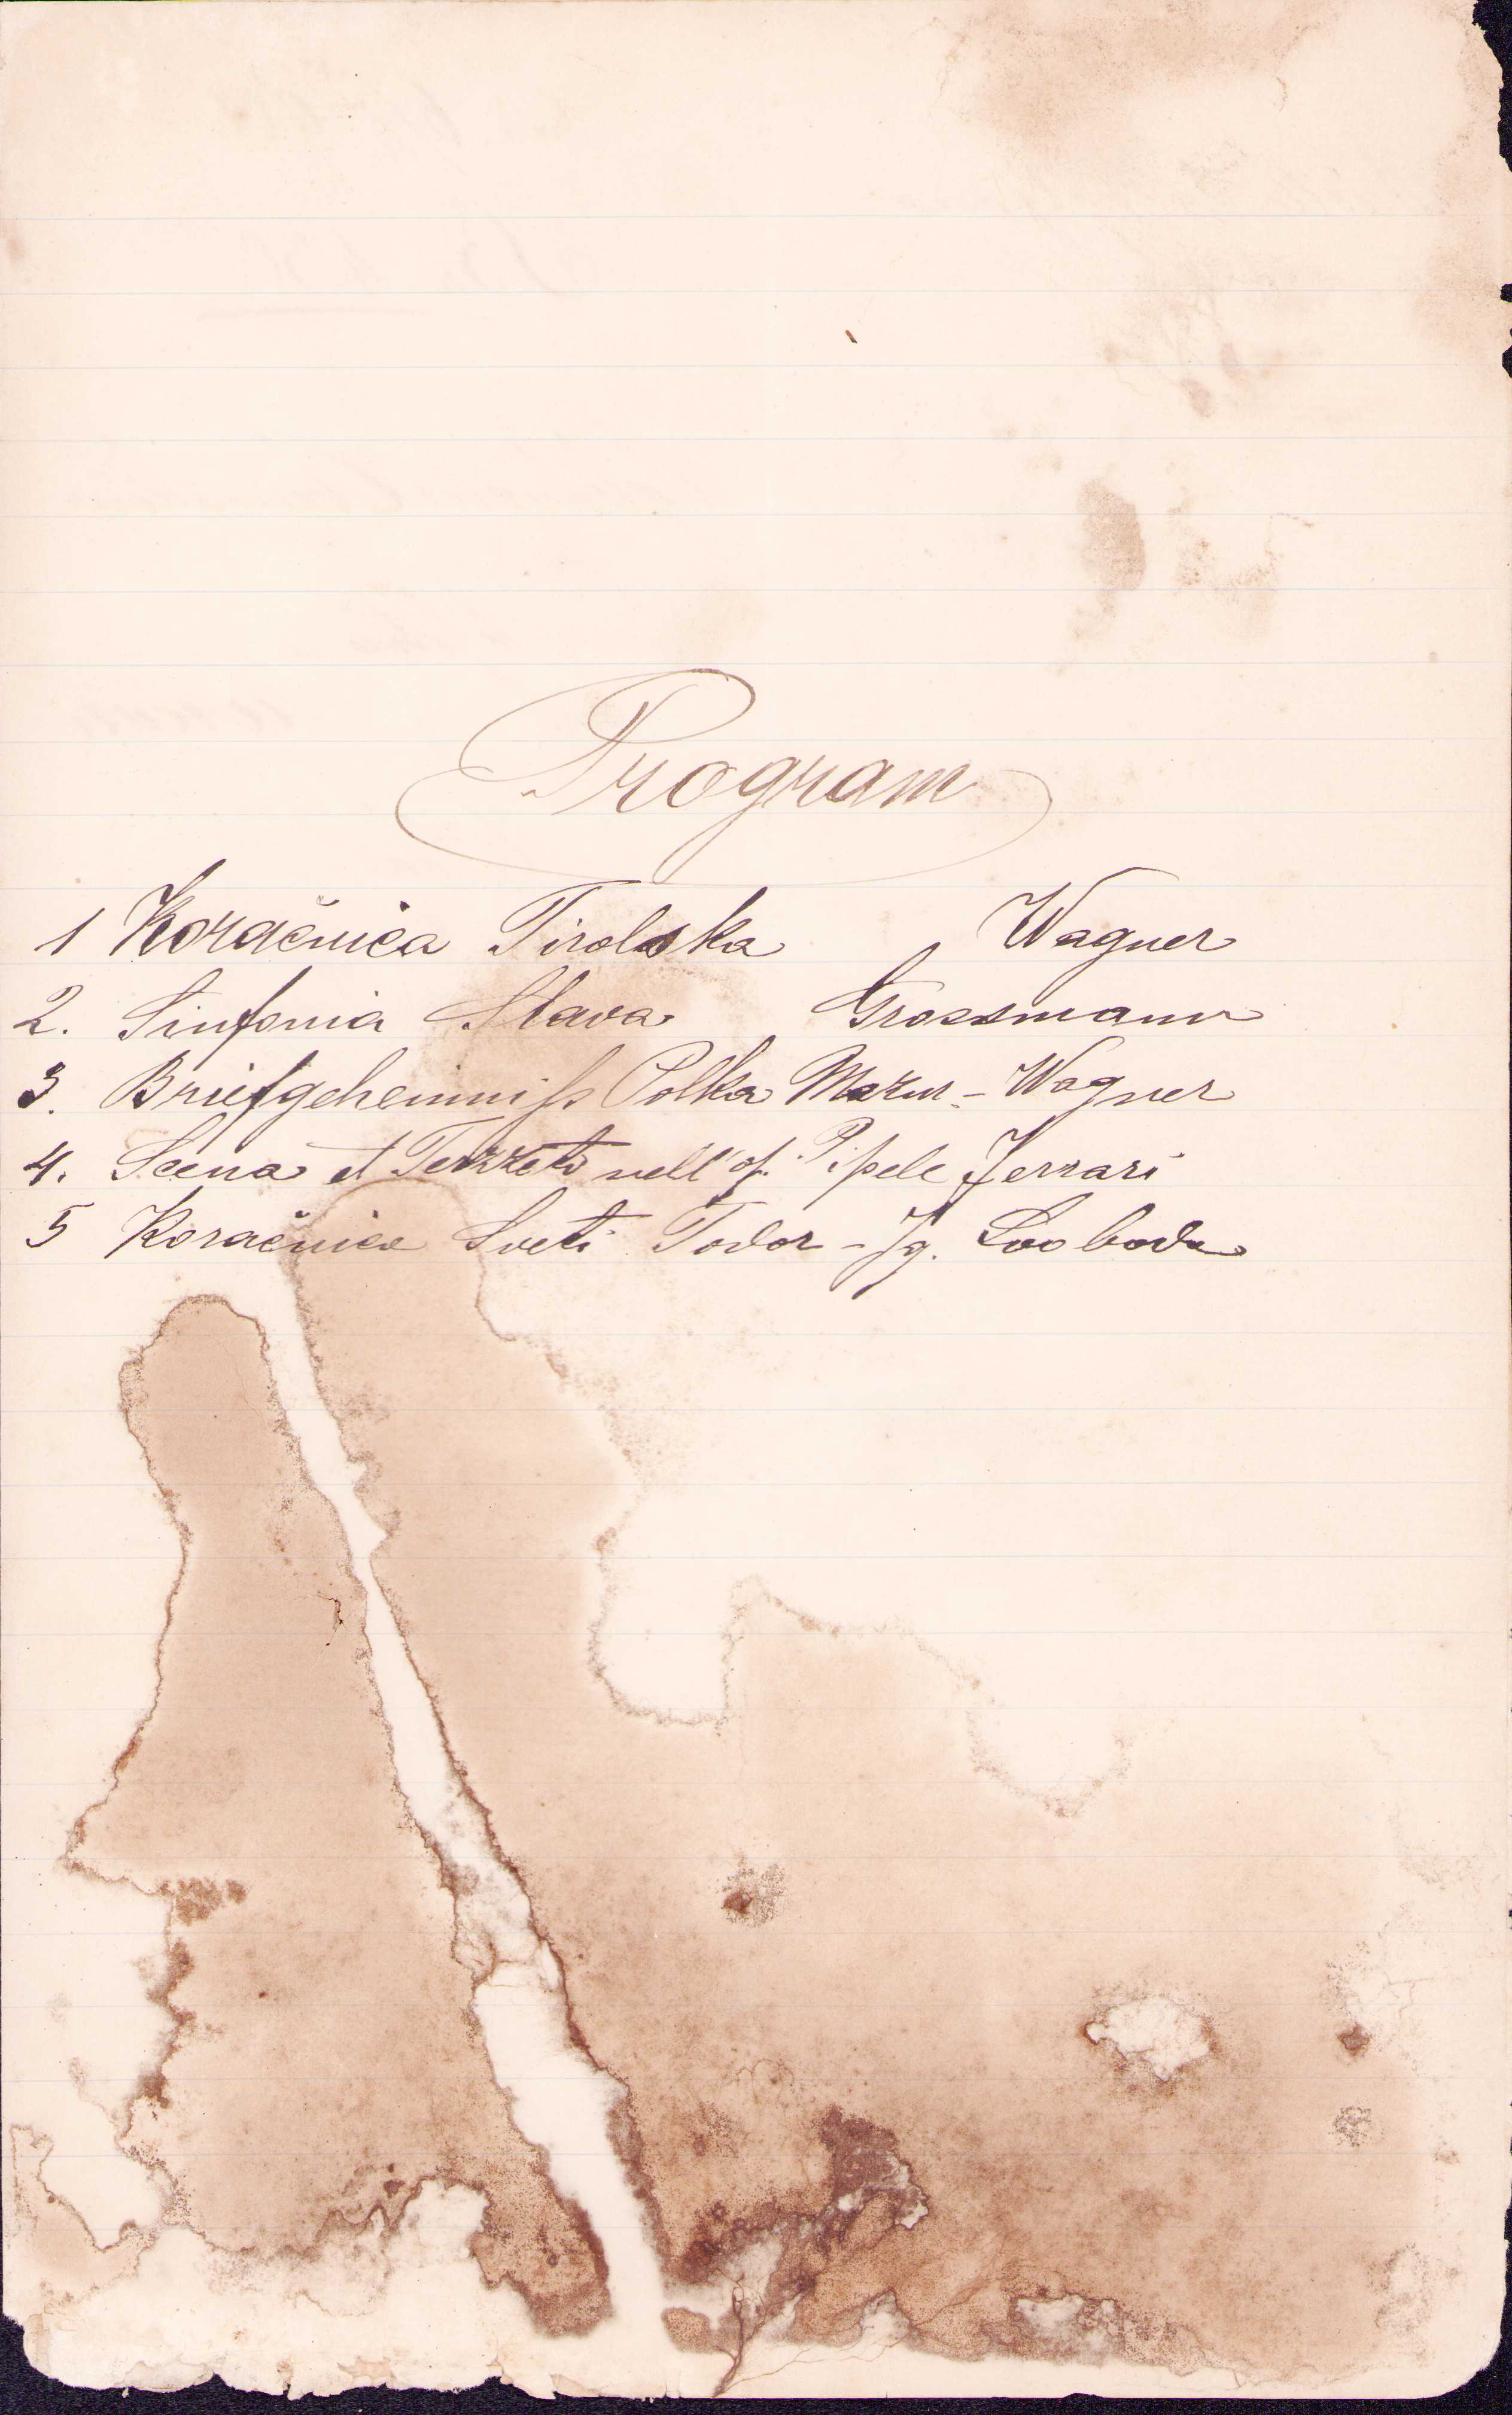 Program
1 Koračnica Tirolska Wagner
2. Sinfonia Slava Grossmann
3. Briefgeheimniss Polka Mazur - Wagner
4. Scena et Terzzeto nell' op. Pipele Ferrari
5 Koračnica Sveti Todor - Ig. Svoboda